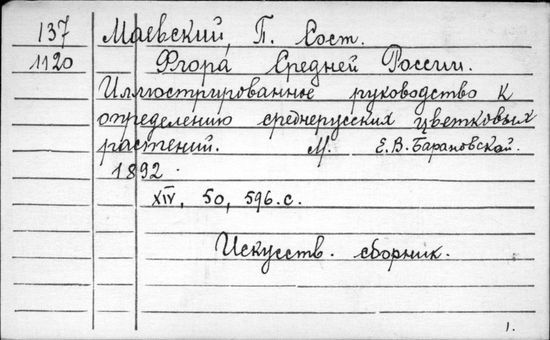 137 Маевский, П. Сост.
1120 Флора Средней России.
Иллюстрированное руководство к
определению среднерусских цветковых
растений. М. Е.В.Барановской.
1892.
XIV, 50, 596.с.
Искусств. сборник.
1.